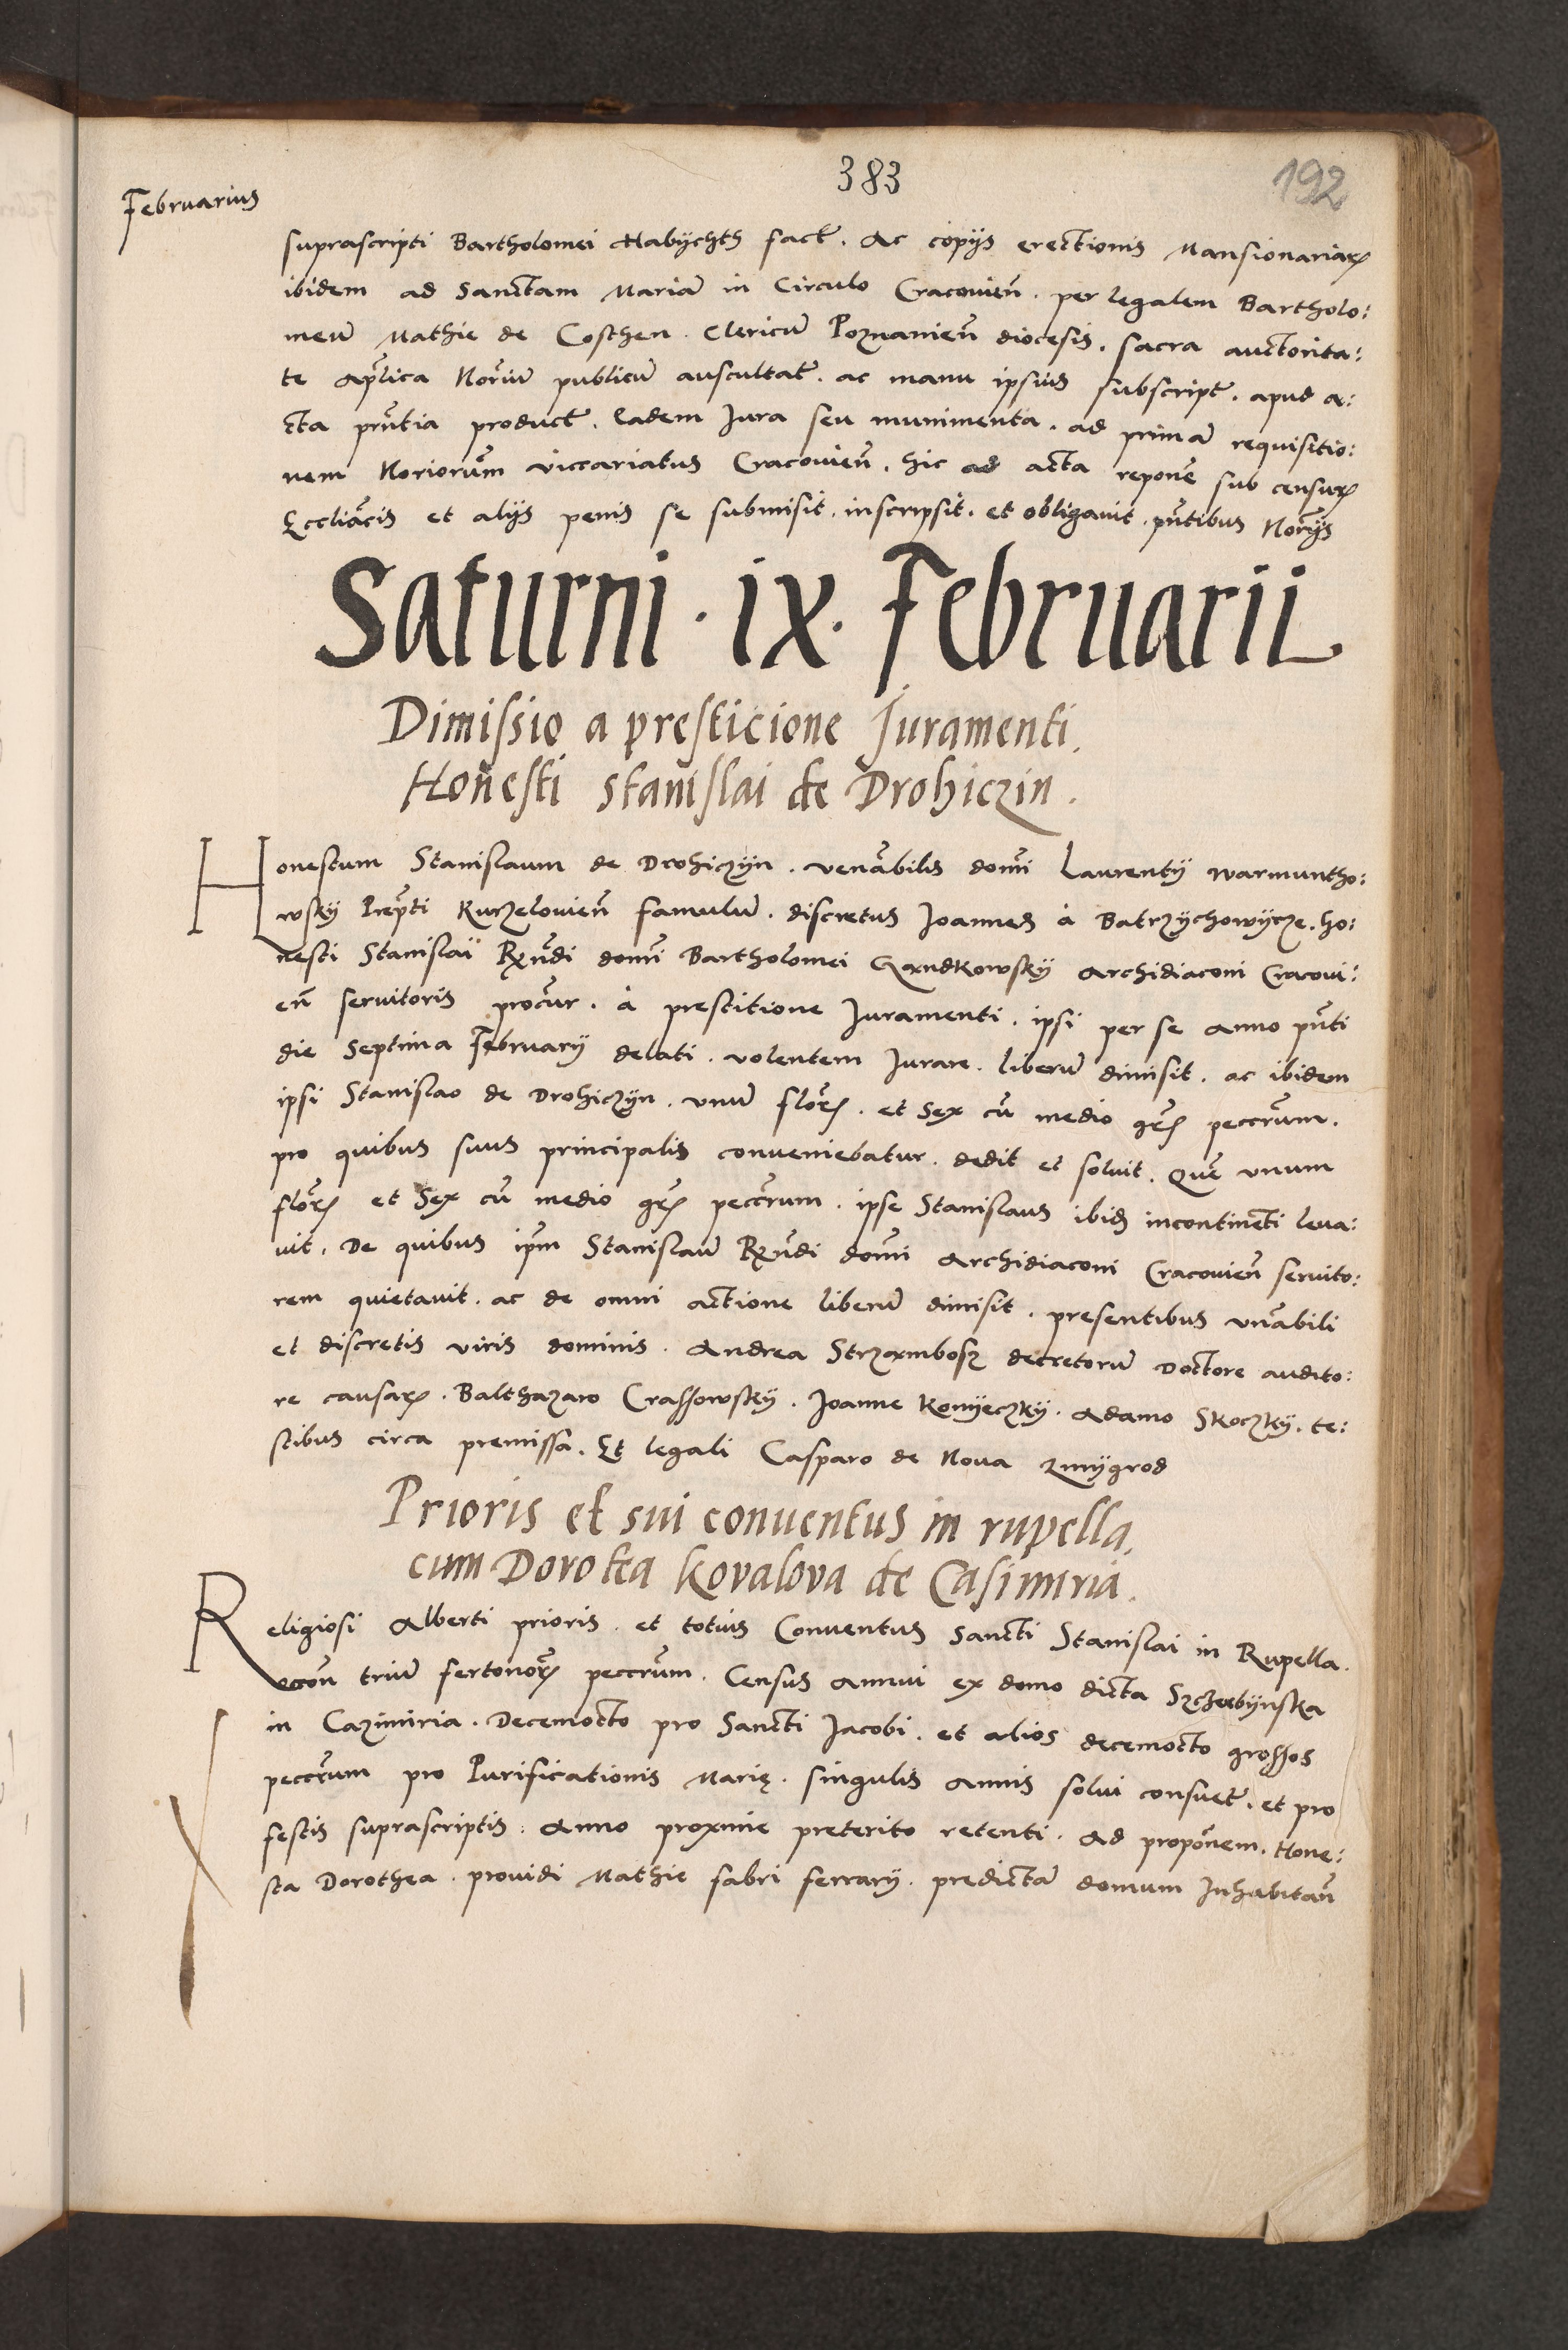 383
192
Februarius
suprascripti Bartholomei Habijchth fact. Ac copijs erectionis Mansionariarꝝ
ibidem ad Sanctam Mariā in Circulo Cracovien̄. per legalem Bartholo:
meū Mathie de Costhen. Clericū Poznanien̄ diocesis. sacra auctorita:
te ap̄lica Nor̄iū publicū auscultat̄. ac manu ipsius subscript̄. apud a:
cta pn̄tia product̄. Eadem Jura seu munimenta. ad primā requisitio:
nem Noriorum̄ viccariatus Cracovien̄. hic ad acta repone̅ sub censurꝝ
Eccliācis et alijs penis se submisit. inscripsit. et obligavit. pn̄tibus Nor̄ijs
Saturni . ix. Februarii
Dimissio a presticione Juramenti.
Honesti stanislai de Drohiczin.
Honestum Stanislaum de Drohiczijn. venābilis domī Laurentij warmuntho:
wskij Prep̄ti Kurzelovien̄ famulū. discretus Joannes à Batrzijchowijcze. ho:
nesti Stanislai Rx̄ndi domī Bartholomei Gxndkowskij Archidiaconi Cracovi:
en̄ servitoris procur̄. à prestitione Juramenti. ipsi per se anno pn̄ti
die Septima Februarij delati. volentem Jurare. liberū dimisit. ac ibidem
ipsi Stanislao de Drohiczijn. unū flor̄ꝝ. et Sex cū medio gr̄ꝝ peccr̄um.
pro quibus suus principalis conveniebatur. dedit et solvit. Que̅ unum
flor̄ꝝ et Sex cū medio gr̄ꝝ peccr̄um. ipse Stanislaus ibidꝫ incontinēti leva:
vit. De quibus ip̄m Stanislaū Rx̄ndi domī Archidiaconi Cracovien̄ servito:
rem quietavit. ac de omni actione liberū dimisit. presentibus vnābili
et discretis viris dominis. Andrea Strzxmbosz decretorū Doctore audito:
re causarꝝ. Balthazaro Crassowskij. Joanne Konijeczkij. Adamo Skoczkij. te:
stibus circa premissa. Et legali Casparo de Nova Zmijgrod
Prioris et sui conventus in rupella.
cum Dorotea Kovalova de Casimiria.
Religiosi Alberti prioris. et totius Conventus Sancti Stanislai in Rupella.
rōn̄ triū fertonor̄ꝝ peccr̄um. Census annui ex domo dicta Szczerbijnska
in Cazimiria. Decemocto pro Sancti Jacobi. et alios decemocto grossos
peccr̄um pro Purificationis Marię. singulis annis solvi consuet̄. et pro
festis suprascriptis. Anno proxime preterito retenti. Ad propōnem. Hone:
sta Dorothea. providi Mathie fabri ferrarij. predictā domum Inhabitan̄